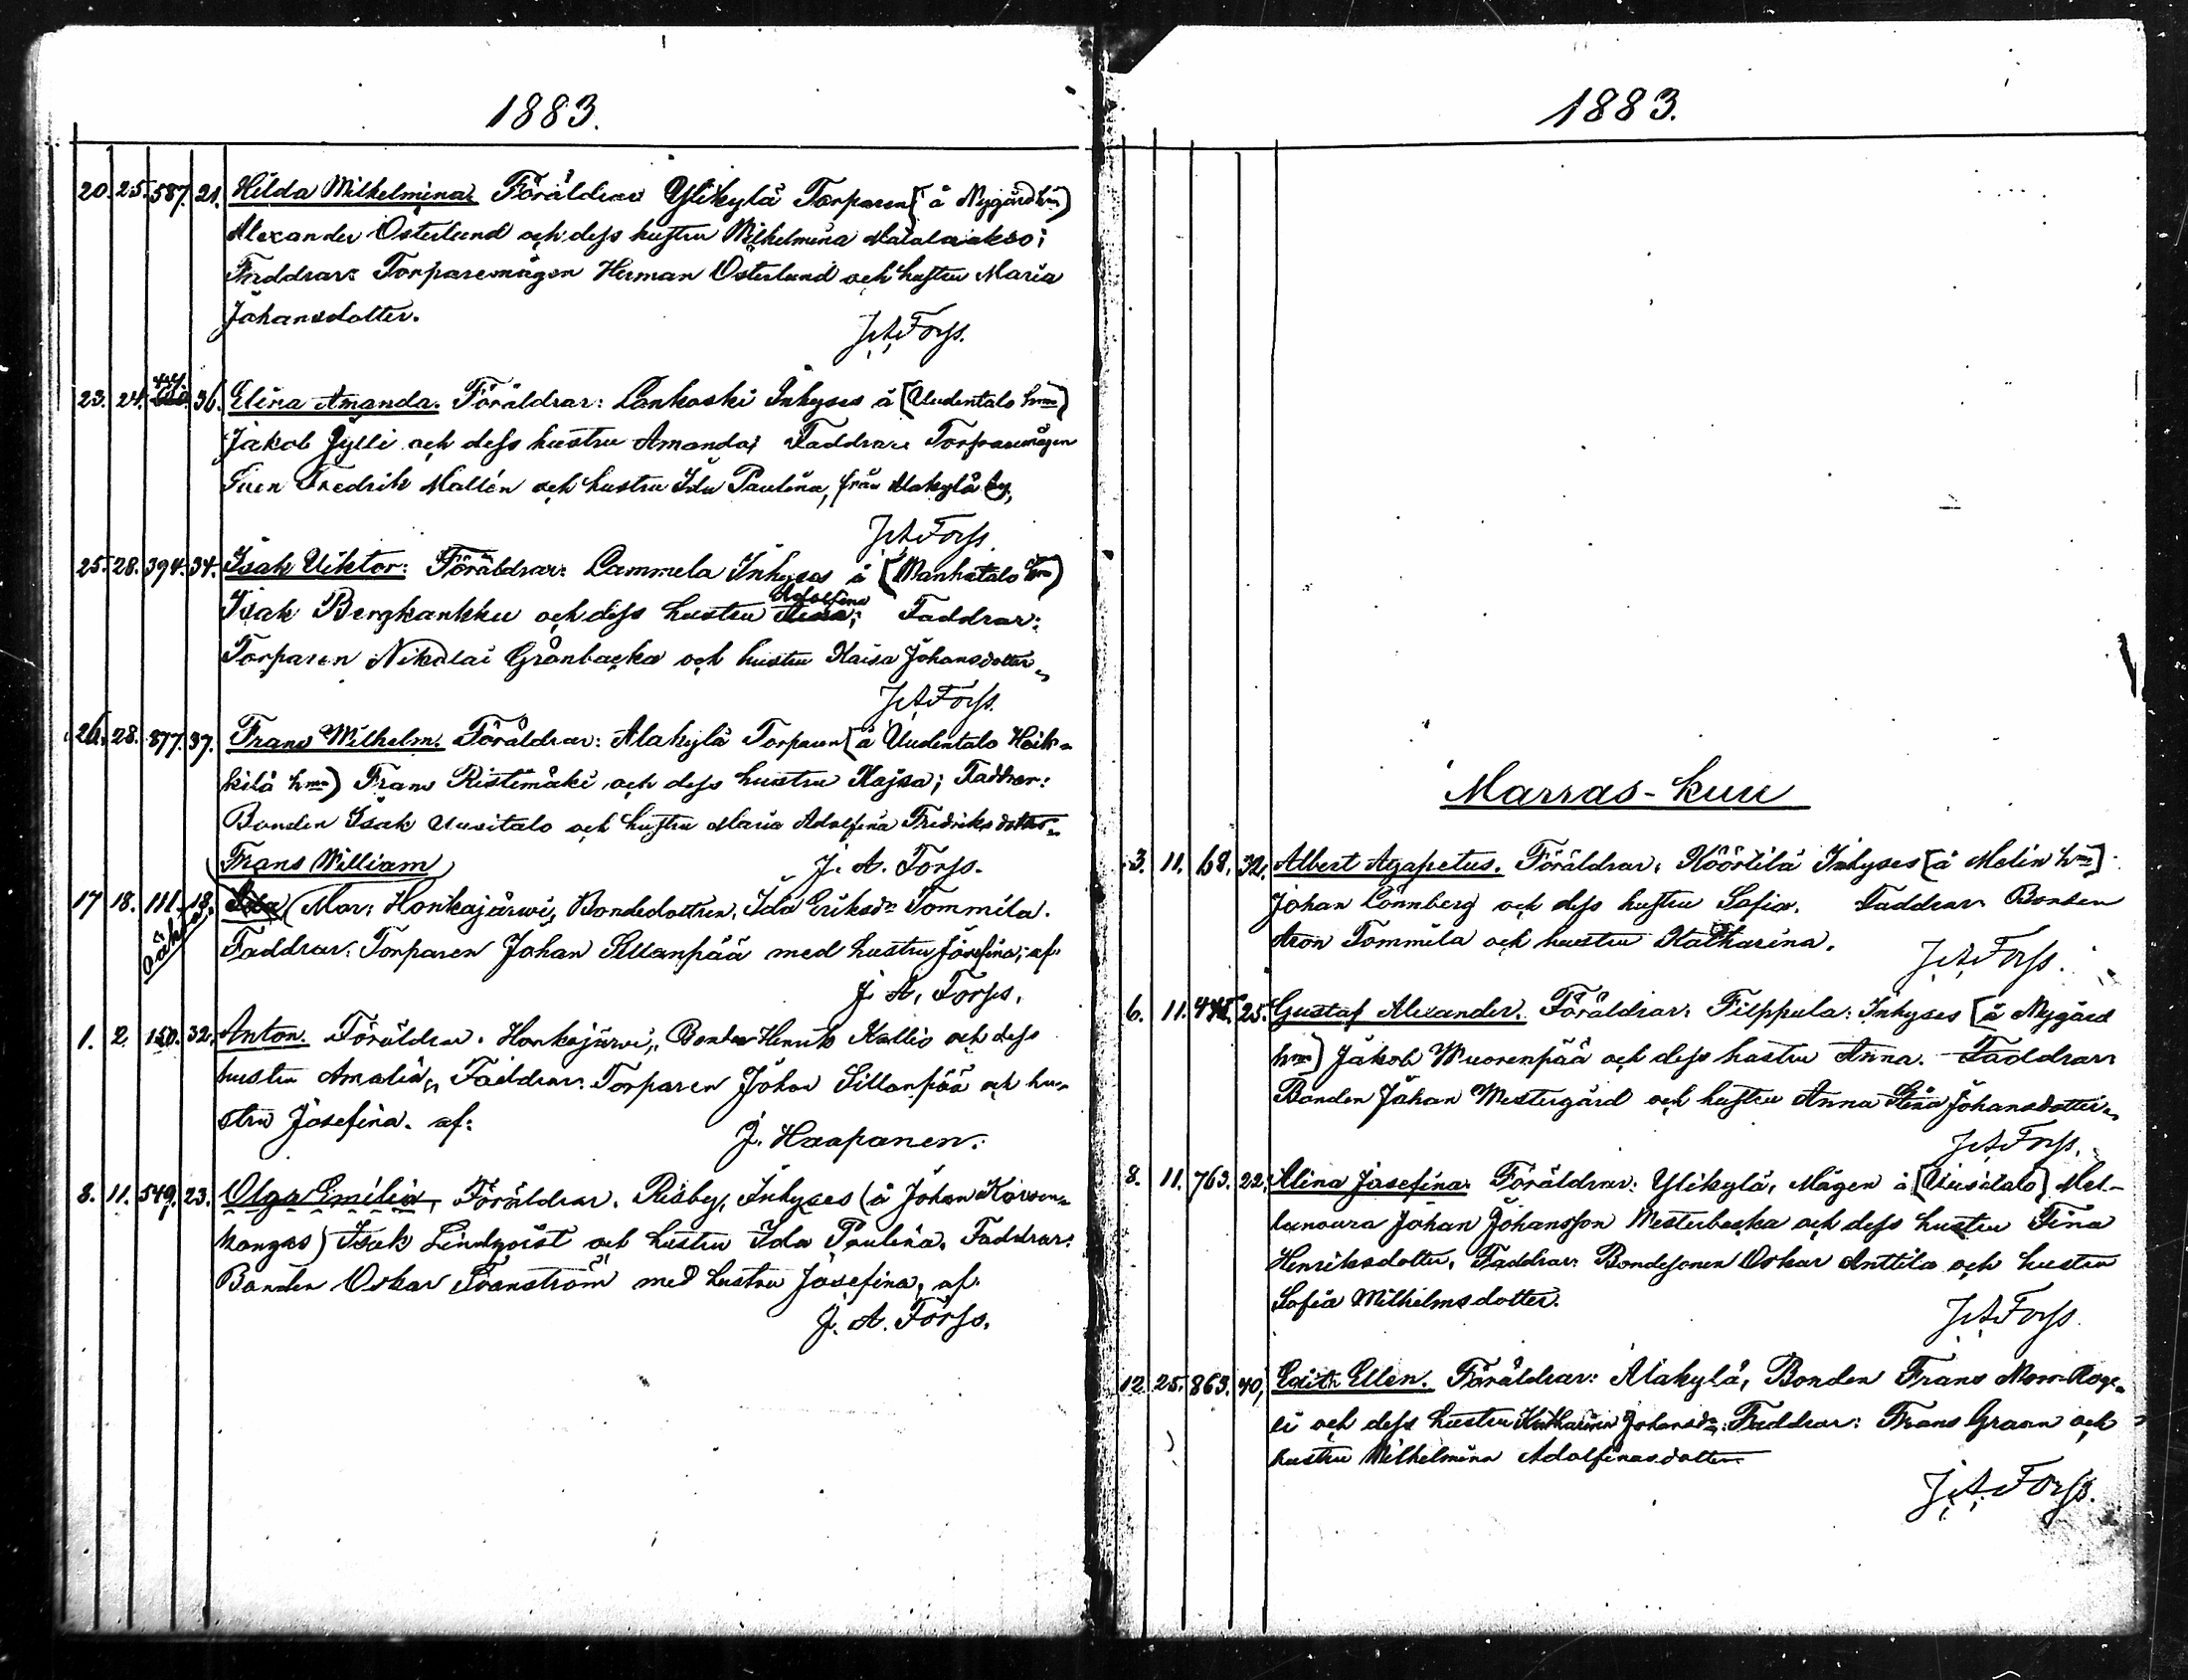 1883.
20. 25. 587. 21. Hilda Wilhelmina: Föräldrar Ylikylä Torparen (å Nygård hmn)
Alexander Österlund och dess hustru Wilhelmina
Faddrar: Torparemågen Herman Österlund och hustru Maria
Johansdotter.
J. A. Forss.
23. 24. 36. Elina Amanda. Föräldrar: Lankoski Inhyses å (Uudentalo hmn)
Jakob Jylli och dess hustru Amanda; Faddrar: Torparemågen
Sven Fredrik Mallén och hustru Ida Paulina, från Alakylä by,
J. A. Forss.
25. 28. 394. 34. Isak Viktor: Föräldrar: Lammela Inhyses å (Wanhatalo hmn)
Isak Bergkankku och dess hustru Adolfina; Faddrar:
Torparen Nikolai Grönbacka och hustru Kaisa Johansdotter
J. A. Forss.
26. 28. 877. 37. Frans Wilhelm. Föräldrar: Alakylä Torparen (å Uudentalo Heik-
kilä hmn) Frans Ristimäki och dess hustru Kajsa; Faddrar:
Bonden Isak Uusitalo och hustru Maria Adolfina Fredriksdotter
Frans William
J. A. Forss.
17 18. 111. 18. (Mor: Honkajärwi, Bondedottren, Ida Eriksdr Tommila.
Faddrar: Torparen Johan Sillanpää med hustru Josefina; af.
J. A. Forss.
1. 2. 150. 32. Anton. Föräldrar. Honkajärwi, Bonden Henrik Kallio och dess
hustru Amalia, Faddrar: Torparen Johan Sillanpää och hu-
stru Josefina. af:
J. Haapanen.
8. 11. 549. 23. Olga Emilia, Föräldrar. Risby, Inhyses (å Johan Korven-
kangas) Isak Lindqvist och hustru Ida Paulina. Faddrar:
Bonden Oskar Svanström med hustru Josefina, af.
J. A. Forss.
1883.
Marras-kuu
3. 11. 68. 32. Albert Agapetus. Föräldrar: Köörtilä Inhyses (å Melin hmn)
Johan Lönnberg och dess hustru Sofia. Faddrar: Bonden
Aron Tommila och hustru Katharina.
J. A. Forss.
6. 11. 25. Gustaf Alexander. Föräldrar: Filppula: Inhyses (å Nygård
hmn) Jakob Wuorenpää och dess hustru Anna. Faddrar:
Bonden Johan Westergård och hustru Anna Stina Johansdotter
J. A. Forss.
8. 11. 763. 22. Alina Josefina: Föräldrar: Ylikylä, Mågen å (Uusitalo)
Johan Johansson Westerbacka och dess hustru Fina
Henriksdotter, Faddrar: Bondesonen Oskar Anttila och hustru
Sofia Wilhelmsdotter.
J. A. Forss.
12. 25. 863. 40. Edith Ellen. Föräldrar: Alakylä, Bonden Frans
och dess hustru Katharina Johansdr: Faddrar: Frans Graan och
hustru Wilhelmina Adolfinasdotter
J. A. Forss.